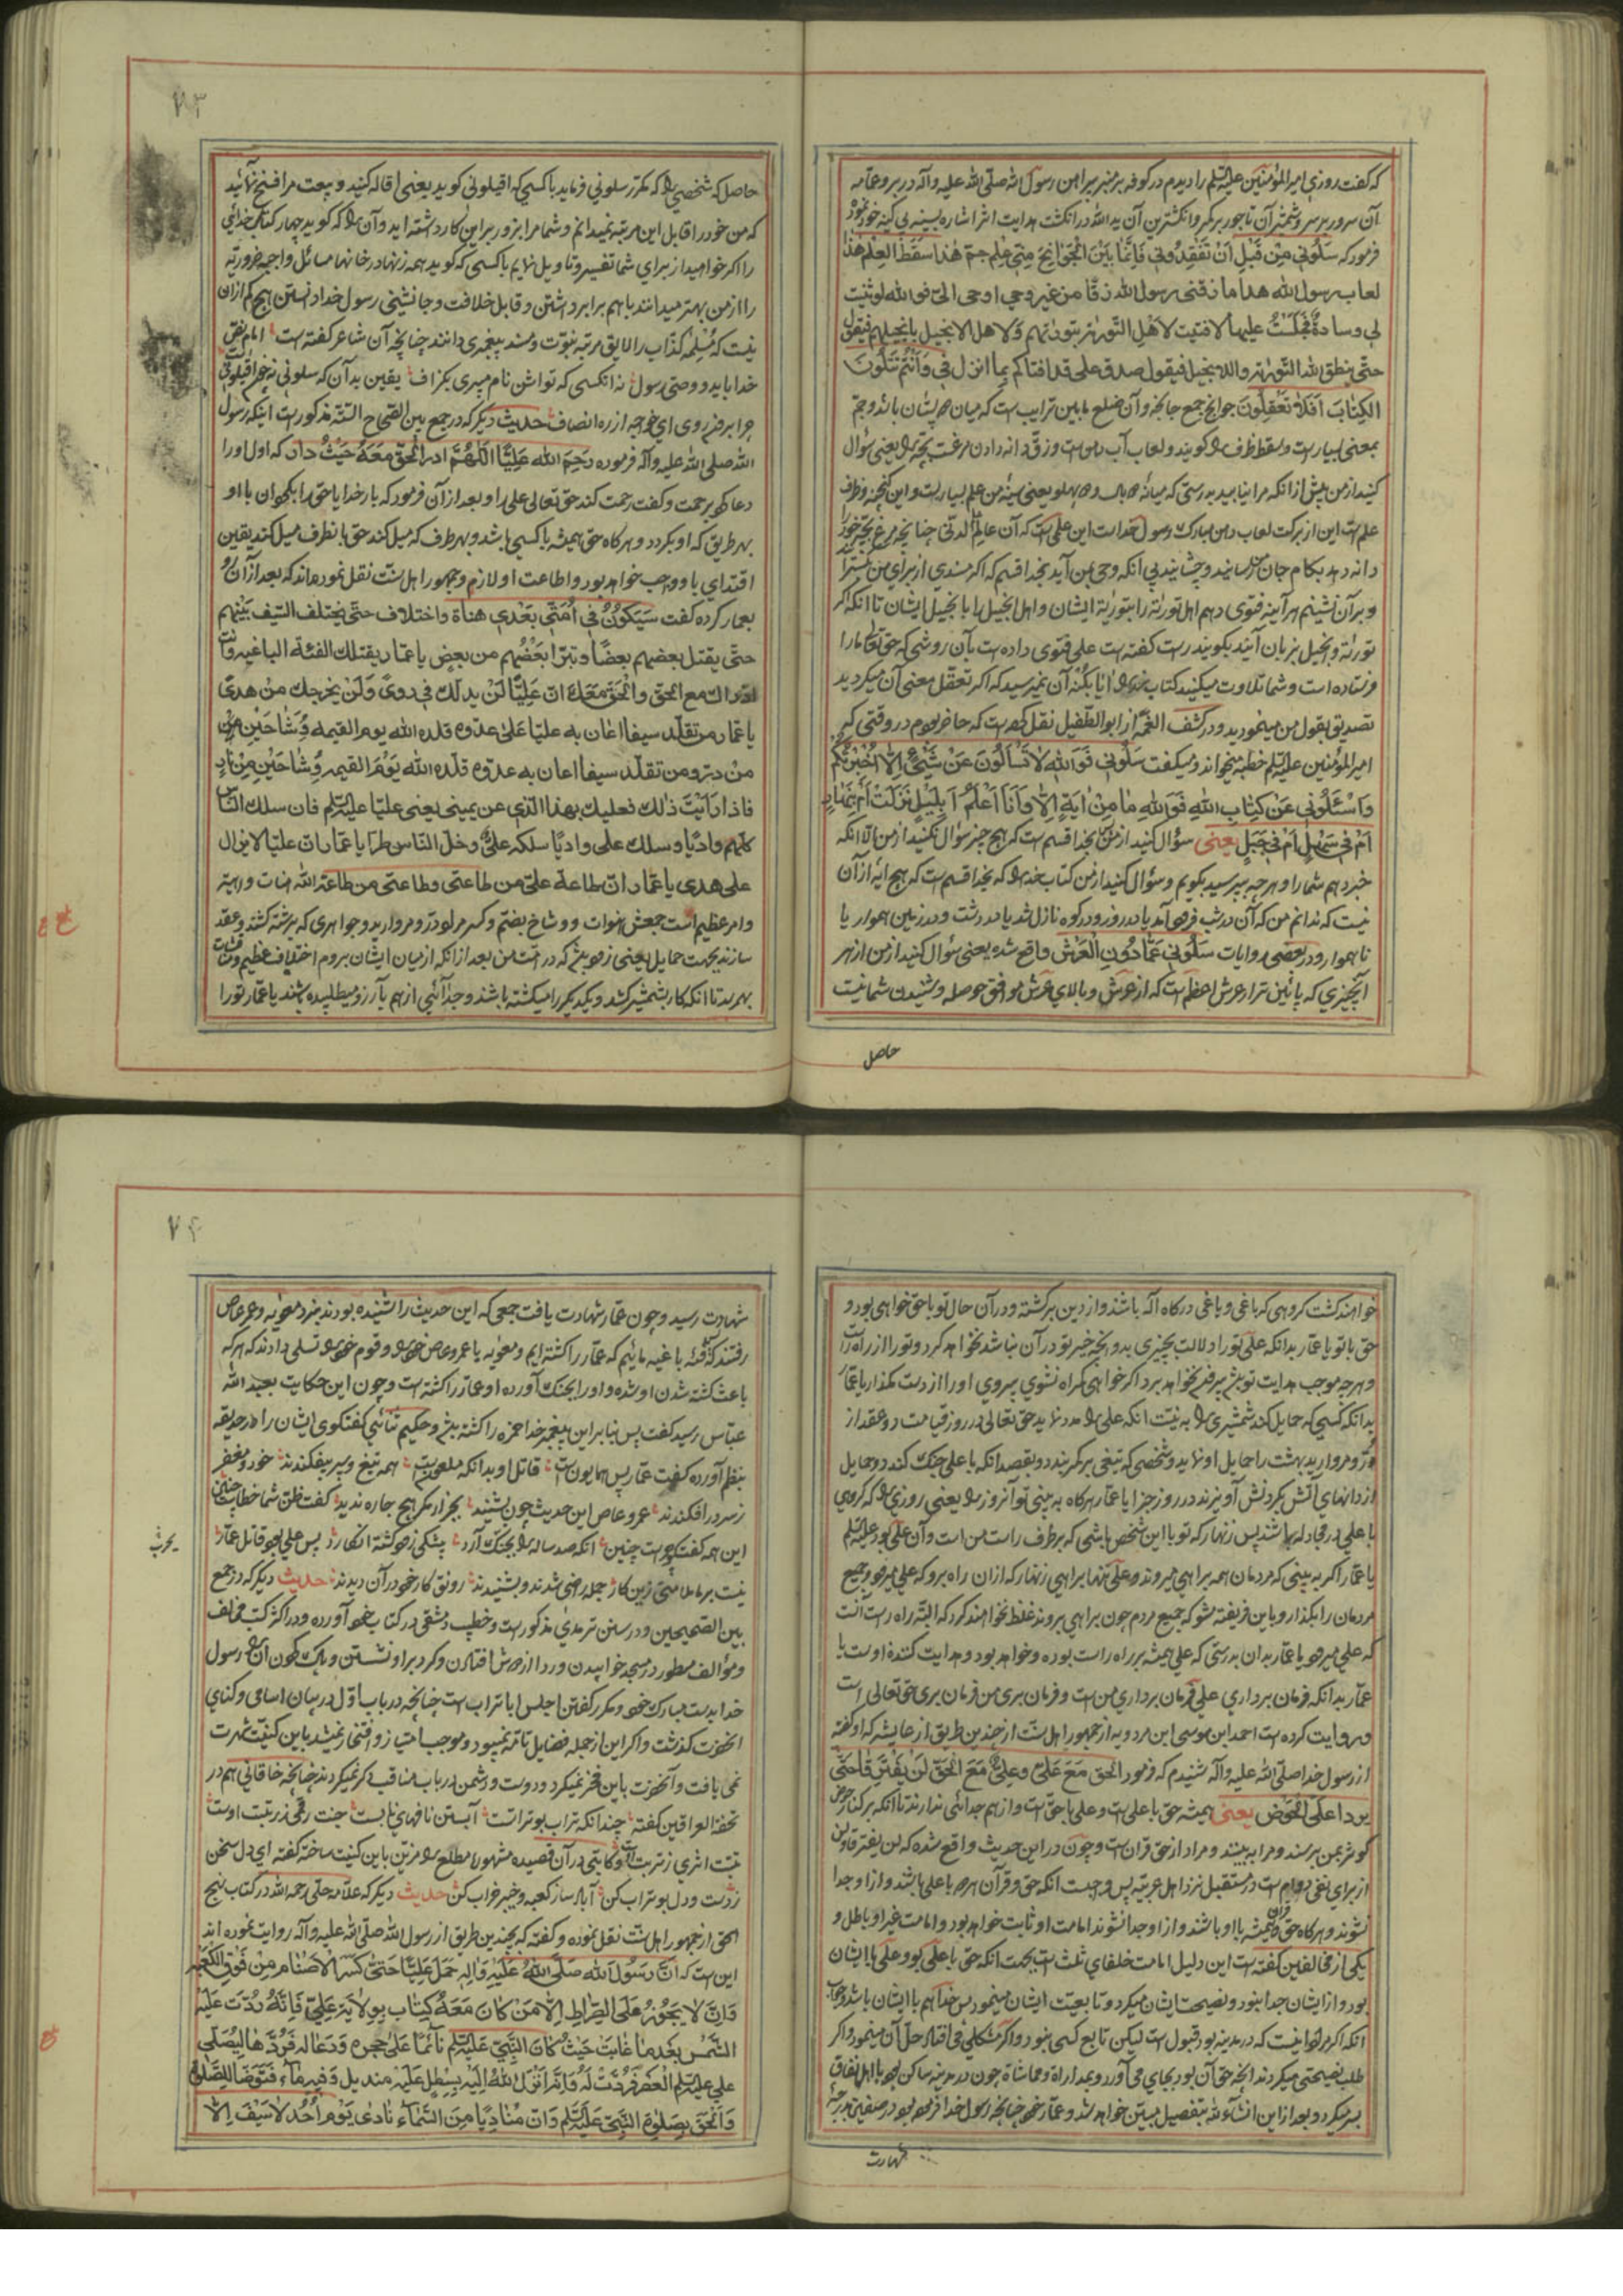 که گفت روزی امیرالمؤمنین علیه السلم را دیدم در کوفه بر منبر پیراهن رسول الله صلی الله علیه وآله در بر و عمامه
آن سرور بر سر و شمشیر آن تاجور بر کمر و انگشترین آن ید الله در انگشت هدایت اثر اشاره بسینه بی کینه خود نموده
فرمود که سَلُونی مِنْ قَبْلِ اَنْ تَفْقِدُونی فَاِنَّما بَیْنَ الْجَوٰانِحِ مِنّی عِلْم جَمّ هٰذا سَقَطُ العِلْم هٰذا
لعاب رسول الله هذا ما زقنی رسول الله زقا من غیر وحی اوحی الیّ فو الله لو ثنیت
لی وسادةٌ فَجَلَسْتُ علیها لافتیت لاَهْلِ التَّوریٰة بتوریٰتهم وَلاهل الانجیل بانجیلهم فیقول
حتّی ینطق الله التَّوریٰة والانجیل فیقول صدق علی قد افتاکم بما انزل فی وَاَنْتُمْ تَتْلُونَ
الکِتٰابَ اَفَلاٰ تَعْقِلُونَ جوانح جمع جانحه و آن ضلع مابین ترایب است که میان پستان باشد و جمّ
بمعنی بسیار است و سقط ظرف را گویند و لعاب آب دهن است و زقّ دانه دادن مرغست بچه را یعنی سؤال
کنید از من پیش از انکه مرا نیابید بدرستی که میانه دو پهلو یعنی سینه من علم بسیار است و این گنجینه و ظرف
علم است این از برکت لعاب دهن مبارک رسول خداست این علمی است که آن عالم لدنّی چنانچه مرغ بچه خود را
دانه دهد بکام جان من رسانید و چشانید بی انکه وحی بمن آید بخدا قسم که اگر مسندی از برای من بگسترانند
و بر آن نشینم هر آینه فتوی دهم اهل توریٰة را بتوریٰة ایشان و اهل انجیل را بانجیل ایشان تا انکه اگر
توریٰة و انجیل بزبان آیند بگویند راست گفته است علی فتوی داده است بآن روشی که حق تعالی مارا
فرستاده است و شما تلاوت میکنید کتاب خدا را آیا بکُنه آن نمیرسید که اگر تعقل معنی آن میکردید
تصدیق بقول من مینمودید و در کشف الغمّه از ابو الطفیل نقل کرده است که حاضر بودم در وقتی که
امیرالمؤمنین علیه السلم خطبه میخواند و میگفت سَلُونی فَوَ اللهِ لاٰ تَسْاَلُونَ عَنْ شَیْءٍ اِلاّٰ اَخْبَرْتُکُم
وَاسْئَلُونی عَنْ کِتٰابِ اللهِ فَوَ اللهِ مٰا مِنْ اٰیَةٍ اِلاّٰ وَاَنَا اَعْلَمُ اَ بِلَیْلٍ نَزَلَتْ اَمْ بِنَهٰارٍ
اَمْ فی سَهْلٍ اَمْ فی جَبَلٍ یعنی سؤال کنید از من که بخدا قسم است که هیچ چیز سؤال نکنید از من الاّ انکه
خبر دهم شما را و هر چه بپرسید بگویم و سؤال کنید از من کتاب خدا را که بخدا قسم است که هیچ ایه از آن
نیست که ندانم من که آن در شب فرود آمد یا در روز و در کوه نازل شد یا در دشت و در زمین هموار یا
ناهموار و در بعضی روایات سَلُونی عَمّٰا دُونَ الْعَرْش واقع شده یعنی سؤال کنید از من از هر
آنچیزی که پائین تر از عرش اعظم است که از عرش و بالای عرش موافق حوصله و شنیدن شما نیست
حاصل
۷۳
حاصل که شخصی را که مکرّر سلونی فرماید با کسی که اقیلونی گوید یعنی اقاله کنید و بیعت مرا فسخ نمائید
که من خود را قابل این مرتبه نمیدانم و شما مرا بزور بر این کار داشته اید و آن را که گوید چهار کتاب خدائی
را اگر خواهید از برای شما تفسیر و تاویل نمایم با کسی که گوید همه زنها در خانها مسائل واجبه ضروریّه
را از من بهتر میدانند با هم برابر داشتن و قابل خلافت و جانشینی رسول خدا دانستن هیچ کم از ان
نیست که مُسَیْلمه کذّاب را لایق مرتبه نبوّت و مسند پیغمبری دانند چنانچه آن شاعر گفته است امام بنص
خدا باید و وصی رسول نه انکسی که تواش نام میبری بگزاف یقین بدان که سلونی نه چو اقیلونی
چرا برفتی روی ای خواجه از ره انصاف حدیث دیگر که در جمع بین الصّحاح الستّه مذکور است اینکه رسول
الله صلی الله علیه وآله فرموده رَحِمَ الله عَلِیًّا اَللّٰهُمَّ ادر الْحَقّ مَعَهُ حَیْثُ دار که اول اورا
دعا کرد برحمت و گفت رحمت کند حق تعالی علی را و بعد از آن فرمود که بار خدایا حق را بگردان با او
بهر طریق که او بگردد و هر گاه حق همیشه با کسی باشد و بهر طرف که میل کند حق بانطرف میل کند یقین
اقتدای باو واجب خواهد بود و اطاعت او لازم و جمهور اهل سنّت نقل نموده اند که بعد از آن رو
بعمار کرده گفت سَیَکُونُ فی اُمَّتی بَعْدی هناة و اختلاف حتّی یختلف السّیف بَیْنَهم
حتّی یقتل بعضهم بعضًا و تبرّأ بَعْضُهم من بعضٍ یا عمّار یقتلك الفئة الباغیه وانت
اذ ذاك مع الحق والْحَقّ مَعَكَ انّ عَلِیًّا لَنْ یدلك فی ردیً وَلَنْ یخرجك منْ هدیً
یا عمّار من تقلّد سیفا اعان به علیًا عَلیٰ عدّوه قلده الله یوم القیمه وُشٰاحَیْنِ مِنْ
منْ درّ ومن تقلّد سیفا اعان به عدّوه قلّده الله یَوْمَ القیمه وُشٰاحَیْنِ مِنْ نٰارٍ
فاذا رَاَیْتَ ذٰلك فعلیك بهذا الذّی عن یمینی یعنی علیًا علیه السلم فان سلك النّاس
کلّهم وادیًا وسلك علی وادیًا سلکه علیٌّ وخلّ النّاس طرّا یا عمّار انّ علیًا لا یزال
علی هدی یا عمّار انّ طاعة علیّ من طاعتی وطاعتی من طاعة الله هنات و داهیه
و امر عظیم است جمعش هنوات و وشاح بضمّ و کسر مر لو درّ و مروارید و جواهری که برشته کشند و عقد
سازند بجهت حمایل یعنی زود باشد که در امت من بعد از انکه از میان ایشان بروم اختلاف عظیم و فتنها
بهم رسد تا انکه کار بشمشیر کشد و یکدیگر را میکشته باشند و جدائی از هم بآرزو میطلبیده باشند یا عمّار تو را
خواهند کشت گروهی که باغی و یاغی درگاه اله باشند و از دین برگشته و در آن حال تو با حق خواهی بود و
حق با تو یا عمّار بدانکه علی تو را دلالت بچیزی بد و آنچه خیر تو در آن نباشد نخواهد کرد و تو را از راه راست
و هر چه موجب هدایت تو باشد بیرون نخواهد برد اگر خواهی گمراه نشوی پیروی او را از دست مگذار یا عمّار
بدانکه کسی که حمایل کند شمشیری را به نیّت انکه علی را مدد نماید حق تعالی در روز قیامت دو عقد از
دُرّ و مروارید بهشت را حمایل او نماید و شخصی که تیغی بر کمر بندد و بقصد انکه با علی جنگ کند دو حمایل
از دانهای آتش بگردنش آویزند در روز جزا یا عمّار هر گاه به بینی تو آنروز را یعنی روزی را که گروهی
با علی در مجادله باشند پس زنهار که تو با این شخص باشی که بر طرف راست من است و آن علی بود علیه السلم
یا عمّار اگر به بینی که مردمان همه براهی میروند و علی تنها براهی زنهار که ازان راه برو که علی میرود و جمیع
مردمان را بگذار و باین فریفته مشو که جمیع مردم چون براهی بروند غلط نخواهند کرد که البته راه راست آنست
که علی میرود یا عمّار بدان بدرستی که علی همیشه بر راه راست بوده و خواهد بود و هدایت کنندهٔ اوست یا
عمّار بدانکه فرمان برداری علی فرمان برداری من است و فرمان بری من فرمان بری حق تعالی است
و روایت کرده است احمد ابن موسی ابن مردویه از جمهور اهل سنّت از چندین طریق از عایشه که او گفته
از رسول خدا صلّی الله علیه وآله شنیدم که فرمود الحَق مَعَ عَلیّ وَعلیٌّ مَعَ الْحَقّ لَنْ یَفْتَرِقٰا حَتّٰی
یردا علی الْحَوْض یعنی همیشه حق با علی است و علی با حقّ است و از هم جدائی ندارند تا انکه بر کنار حوض
کوثر بمن برسند و مرا به بینند و مراد از حق قران است و چون در این حدیث واقع شده که لن یفترقا و لن
از برای نفی دوام است در مستقبل نزد اهل عربیّه پس واجبست انکه حق و قرآن هر دو با علی باشند و از او جدا
نشوند و هر گاه حق و قران همیشه با او باشند و از او جدا نشوند امامت او ثابت خواهد بود و امامت غیر او باطل و
یکی از مخالفین گفته است این دلیل امامت خلفای ثلث است بجهت انکه حق با علی بود و علی با ایشان
بود و از ایشان جدا نبود و نصیحت ایشان میکرد و تابعیّت ایشان مینمود پس خدا هم با ایشان باشد و جواب
انکه اگر مراد اینست که در مدینه بود قبول است لیکن تابع کسی نبود و اگر مشکلی می افتاد حلّ آن مینمود و اگر
طلب نصیحتی میکردند انچه حق آن بود بجای می آورد و بمداراة و مماشاة چون در مدینه ساکن بود با اهل نفاق
بسر میکرد و بعد از این انشاء الله بتفصیل مبیّن خواهد شد و عمّار خود چنانچه رسول خدا فرموده بود در صفین بدرجهٔ
شهادت
۷۴
شهادت رسید و چون عمّار شهادت یافت جمعی که این حدیث را شنیده بودند بنزد معویه و عمرعاص
رفتند که فئه باغیه مائیم که عمّار را کشته ایم و معویه یا عمروعاص خود را و قوم خود را تسلّی دادند که هر که
باعث کشته شدن او شده و او را بجنگ آورده او عمّار را کشته است و چون این حکایت بعبد الله
عباس رسید گفت پس بنا بر این پیغمبر خدا حمزه را کشته باشد و حکیم ثنائی گفتگوی ایشان را در حدیقه
بنظم آورده گفت عمار پس همایون است قاتل او بدانکه ملعونست همه تیغ و سپر بیفکندند خود و مغفر
ز سر در افکندند عمرو عاص این حدیث چون بشنید بجز از مکر هیچ چاره ندید گفت ظنّ شما خطاست چنین
این همه گفتگو چراست چنین انکه صد ساله را بجنگ آرد بیشکی زود کشته انگارد پس علی بود قاتل عمّار
نیست بر ما ملامتی زین کار جمله راضی شدند و بشنیدند رونق کار خود در آن دیدند حدیث دیگر که در جمع
بین الصّحیحین و در سنن ترمذی مذکور است و خطیب دمشقی در کتاب خود آورده و در اکثر کتب مخالف
و مؤالف مسطور در مسجد خوابیدن و ردا از دوش افتادن و گرد بر او نشستن و پاک کردن ان را رسول
خدا بدست مبارک خود و مکرر گفتن اجلس ابا تراب است چنانچه در باب اوّل در بیان اسامی و کنای
انحضرت گذشت و اگر این از جمله فضایل تامّه نمیبود و موجب امتیاز و افتخار نمیشد باین کنیّت شهرت
نمی یافت و آنحضرت باین فخر نمیکرد و دوست و دشمن در باب مناقب ذکر نمیکردند چنانچه خاقانی هم در
تحفة العراقین گفته چندانکه تراب بوتراب است آبستن نافهای نابست جنت رقمی ز رتبت اوست
تبّت اثری ز تربت اوست و کاتبی در آن قصیده مشهور مطلع را مزیّن باین کنیّت ساخته گفته ای دل سخن
ز دست و دل بوتراب کن آباد ساز کعبه و خیبر خراب کن حدیث دیگر که علاّمه حلّی رحمه الله در کتاب نهج
الحق از جمهور اهل سنّت نقل نموده و گفته که بچندین طریق از رسول الله صلّی الله علیه وآله روایت نموده اند
این است که انّ رَسُولَ الله صَلَّی اللهُ عَلَیْهِ وَآلِهِ حَمَلَ عَلِیًّا حَتّٰی کَسَرَ الاَصْنٰامَ مِنْ فَوْقِ الکَعْبَه
وَاِنَّ لاٰ یَجُوزُ عَلَی الصِّرٰاطِ اِلاّٰ مَنْ کٰانَ مَعَهُ کِتٰاب بِوِلاٰیَةِ عَلِیّ فَاِنَّهُ رُدَّت عَلَیْه
الشَّمْس بَعْدَ مٰا غٰابَتْ حَیْثُ کٰانَ النَّبیّ عَلَیْهِ السَّلٰم نٰائمًا عَلیٰ حجره وَدَعٰا له فَرُدَّ هٰا لِیُصَلّی
علی علیه السلم العَصْر فَرُدَّتْ لَهُ وَاِنَّهُ اَنْزَلَ اللهُ اِلَیْهِ بِسِطْلٍ عَلَیْهِ مندیل وَفیهِ مٰاء فَتَوَضَّأَ لِلصَّلٰوةِ
وَالْحَق بِصَلٰوةِ النَّبِیّ عَلَیْهِ السَّلٰم وَاِنَّ مُنٰادِیًا مِنَ السَّمٰاءِ نٰادیٰ یَوْمَ اُحُد لاٰ سَیْفَ اِلاّٰ